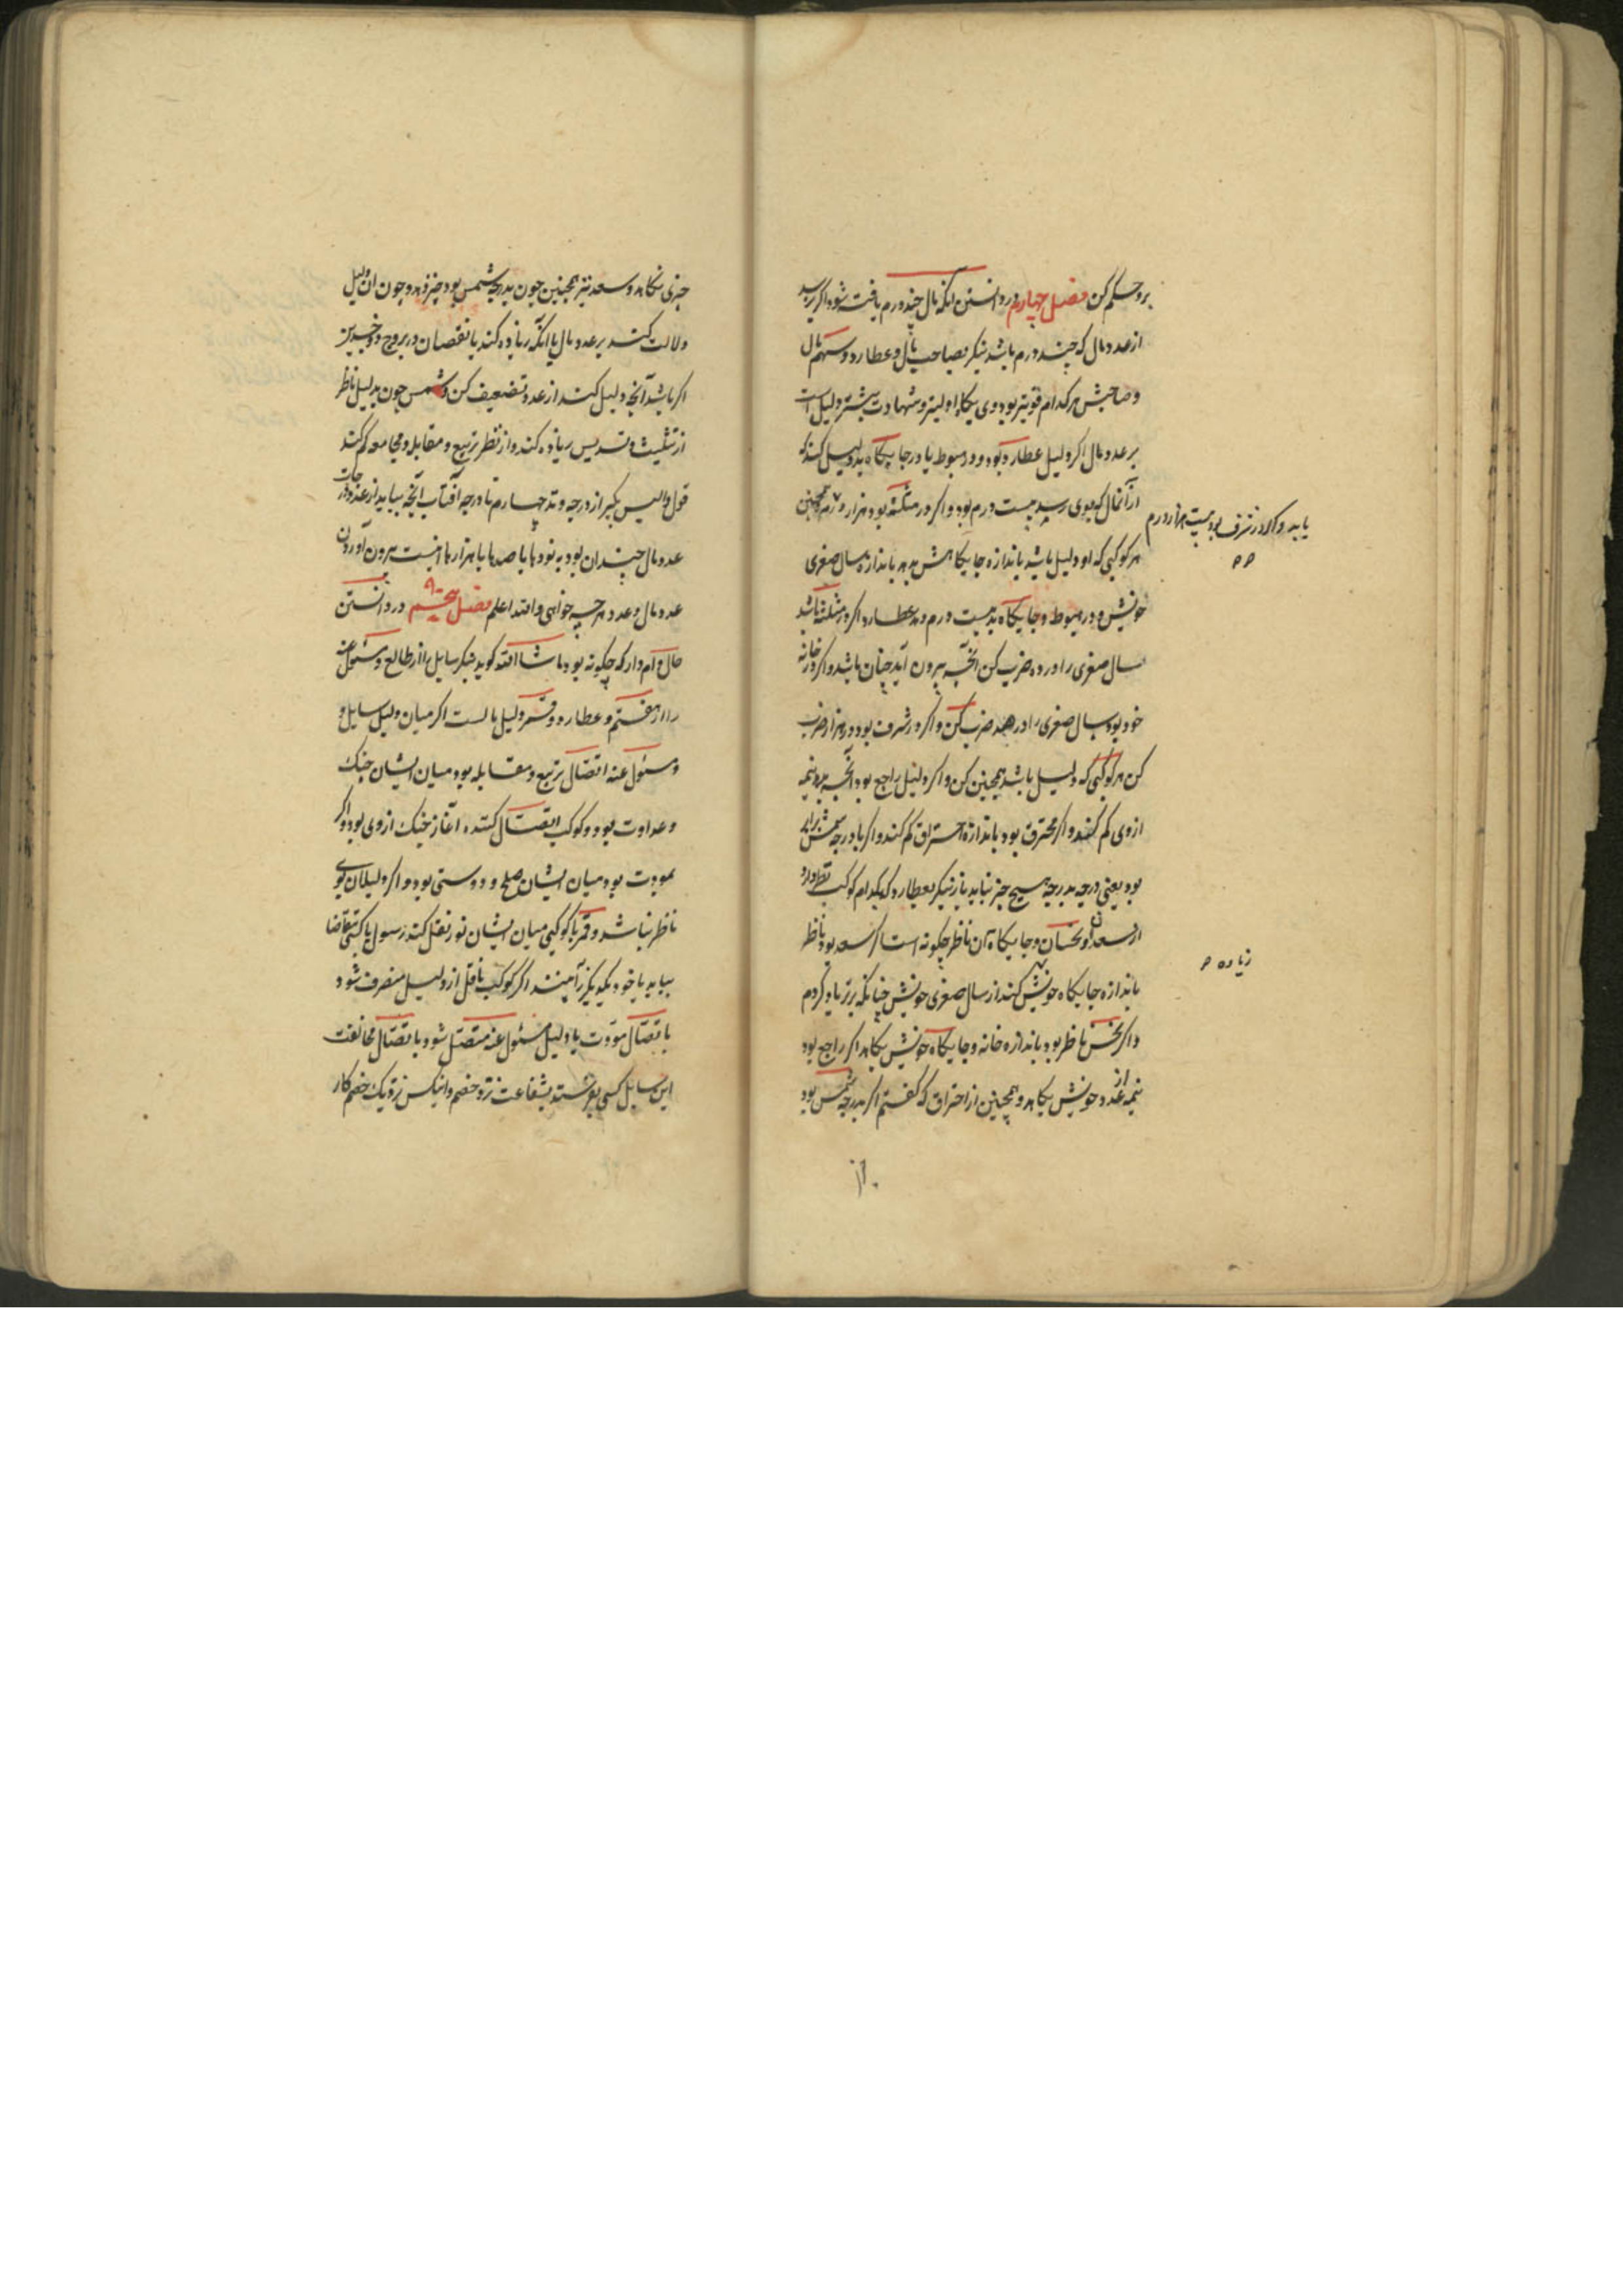 برو حکم کن فصل چهارم در دانستن آنکه مال چند درم یافته شود اگر پرسید
از عدد مال که چند درم باشد بنگر بصاحب مال و عطارد و سهم مال
و صاحبش هر کدام قویتر بود وی بجایگاه اولیتر و شهادت بیشتر دلیل است
بر عدد مال اگر دلیل عطارد بود و در هبوط یا در جایگاه بد دلیل کند که
از آن مال که بوی رسید بیست درم بود و اگر در مثلثه بود هزار درم همچنین
یابد و اگر در شرف بود بیست هزار درم
هر کوکبی که او دلیل باشد باندازه جایگاهش بدهد باندازه سال صغری
خویش و در هبوط و جایگاه بد بیست درم دهد عطارد و اگر در مثلثه باشد
سال صغری را در ده ضرب کن آنچه بیرون آید چنان باشد و اگر در خانه
خود بود سال صغری را در صد ضرب کن و اگر در شرف بود در هزار ضرب
کن هر کوکبی که دلیل باشد همچنین کن و اگر دلیل راجع بود آنچه بود نیمه
از وی کم کنند و اگر محترق بود باندازه احتراق کم کند و اگر با درجه شمس برابر
بود یعنی درجه بدرجه هیچ چیز نیابد باز بنگر بعطارد که بکدام کوکب نظر دارد
از سعدان و نحسان و جایگاه آن ناظر چگونه است اگر سعد بود ناظر
باندازه جایگاه خویش کند از سال صغری خویش چنانکه برتر یاد کردم
زیاده
و اگر نحس ناظر بود باندازه خانه و جایگاه خویش بکاهد اگر راجع بود
نیمه از عدد خویش بکاهد و همچنین از احتراق که گفتم اگر بدرجه شمس بود
چیزی نکاهد و سعد نیز همچنین چون بدرجه شمس بود چیز ندهد و چون آن دلیل
دلالت کند بر عدد مال یا آنکه زیاده کند یا نقصان در بروج ذو جسدین
اگر باشد آنچه دلیل کند از عدد تضعیف کن و شمس چون بدلیل ناظر
از تثلیث و تسدیس زیاده کند و از نظر تربیع و مقابله و مجامعه کم کند
قول والیس بگیر از درجه وتد چهارم تا درجه آفتاب آنچه بیاید از عدد درجات
عدد مال چندان بود به نودها یا صدها یا هزارها اینست بیرون آوردن
عدد مال و عدد هر چه خواهی والله اعلم فصل پنجم در دانستن
حال وام دار که چگونه بود ما شاالله گوید بنگر سایل را از طالع و مسئول عنه
را از هفتم و عطارد و قمر دلیل مالست اگر میان دلیل سایل و
و مسئول عنه اتصال تربیع و مقابله بود میان ایشان جنگ
و عداوت بود و کوکب اتصال کننده آغاز جنگ از وی بود و اگر
بمودت بود میان ایشان صلح و دوستی بود و اگر دلیلان بوی
ناظر نباشد و قمر یا کوکبی میان ایشان نور نقل کند رسول یا کسی بتقاضا
بیاید یا خود بیکدیگر آمیزند اگر کوکب ناقل از دلیل منصرف شود
باتصال مودت یا دلیل مسئول عنه متصل شود باتصال مخالفت
این سایل کسی بفرستد بشفاعت نزد خصم و آنکس نزدیک خصم کار